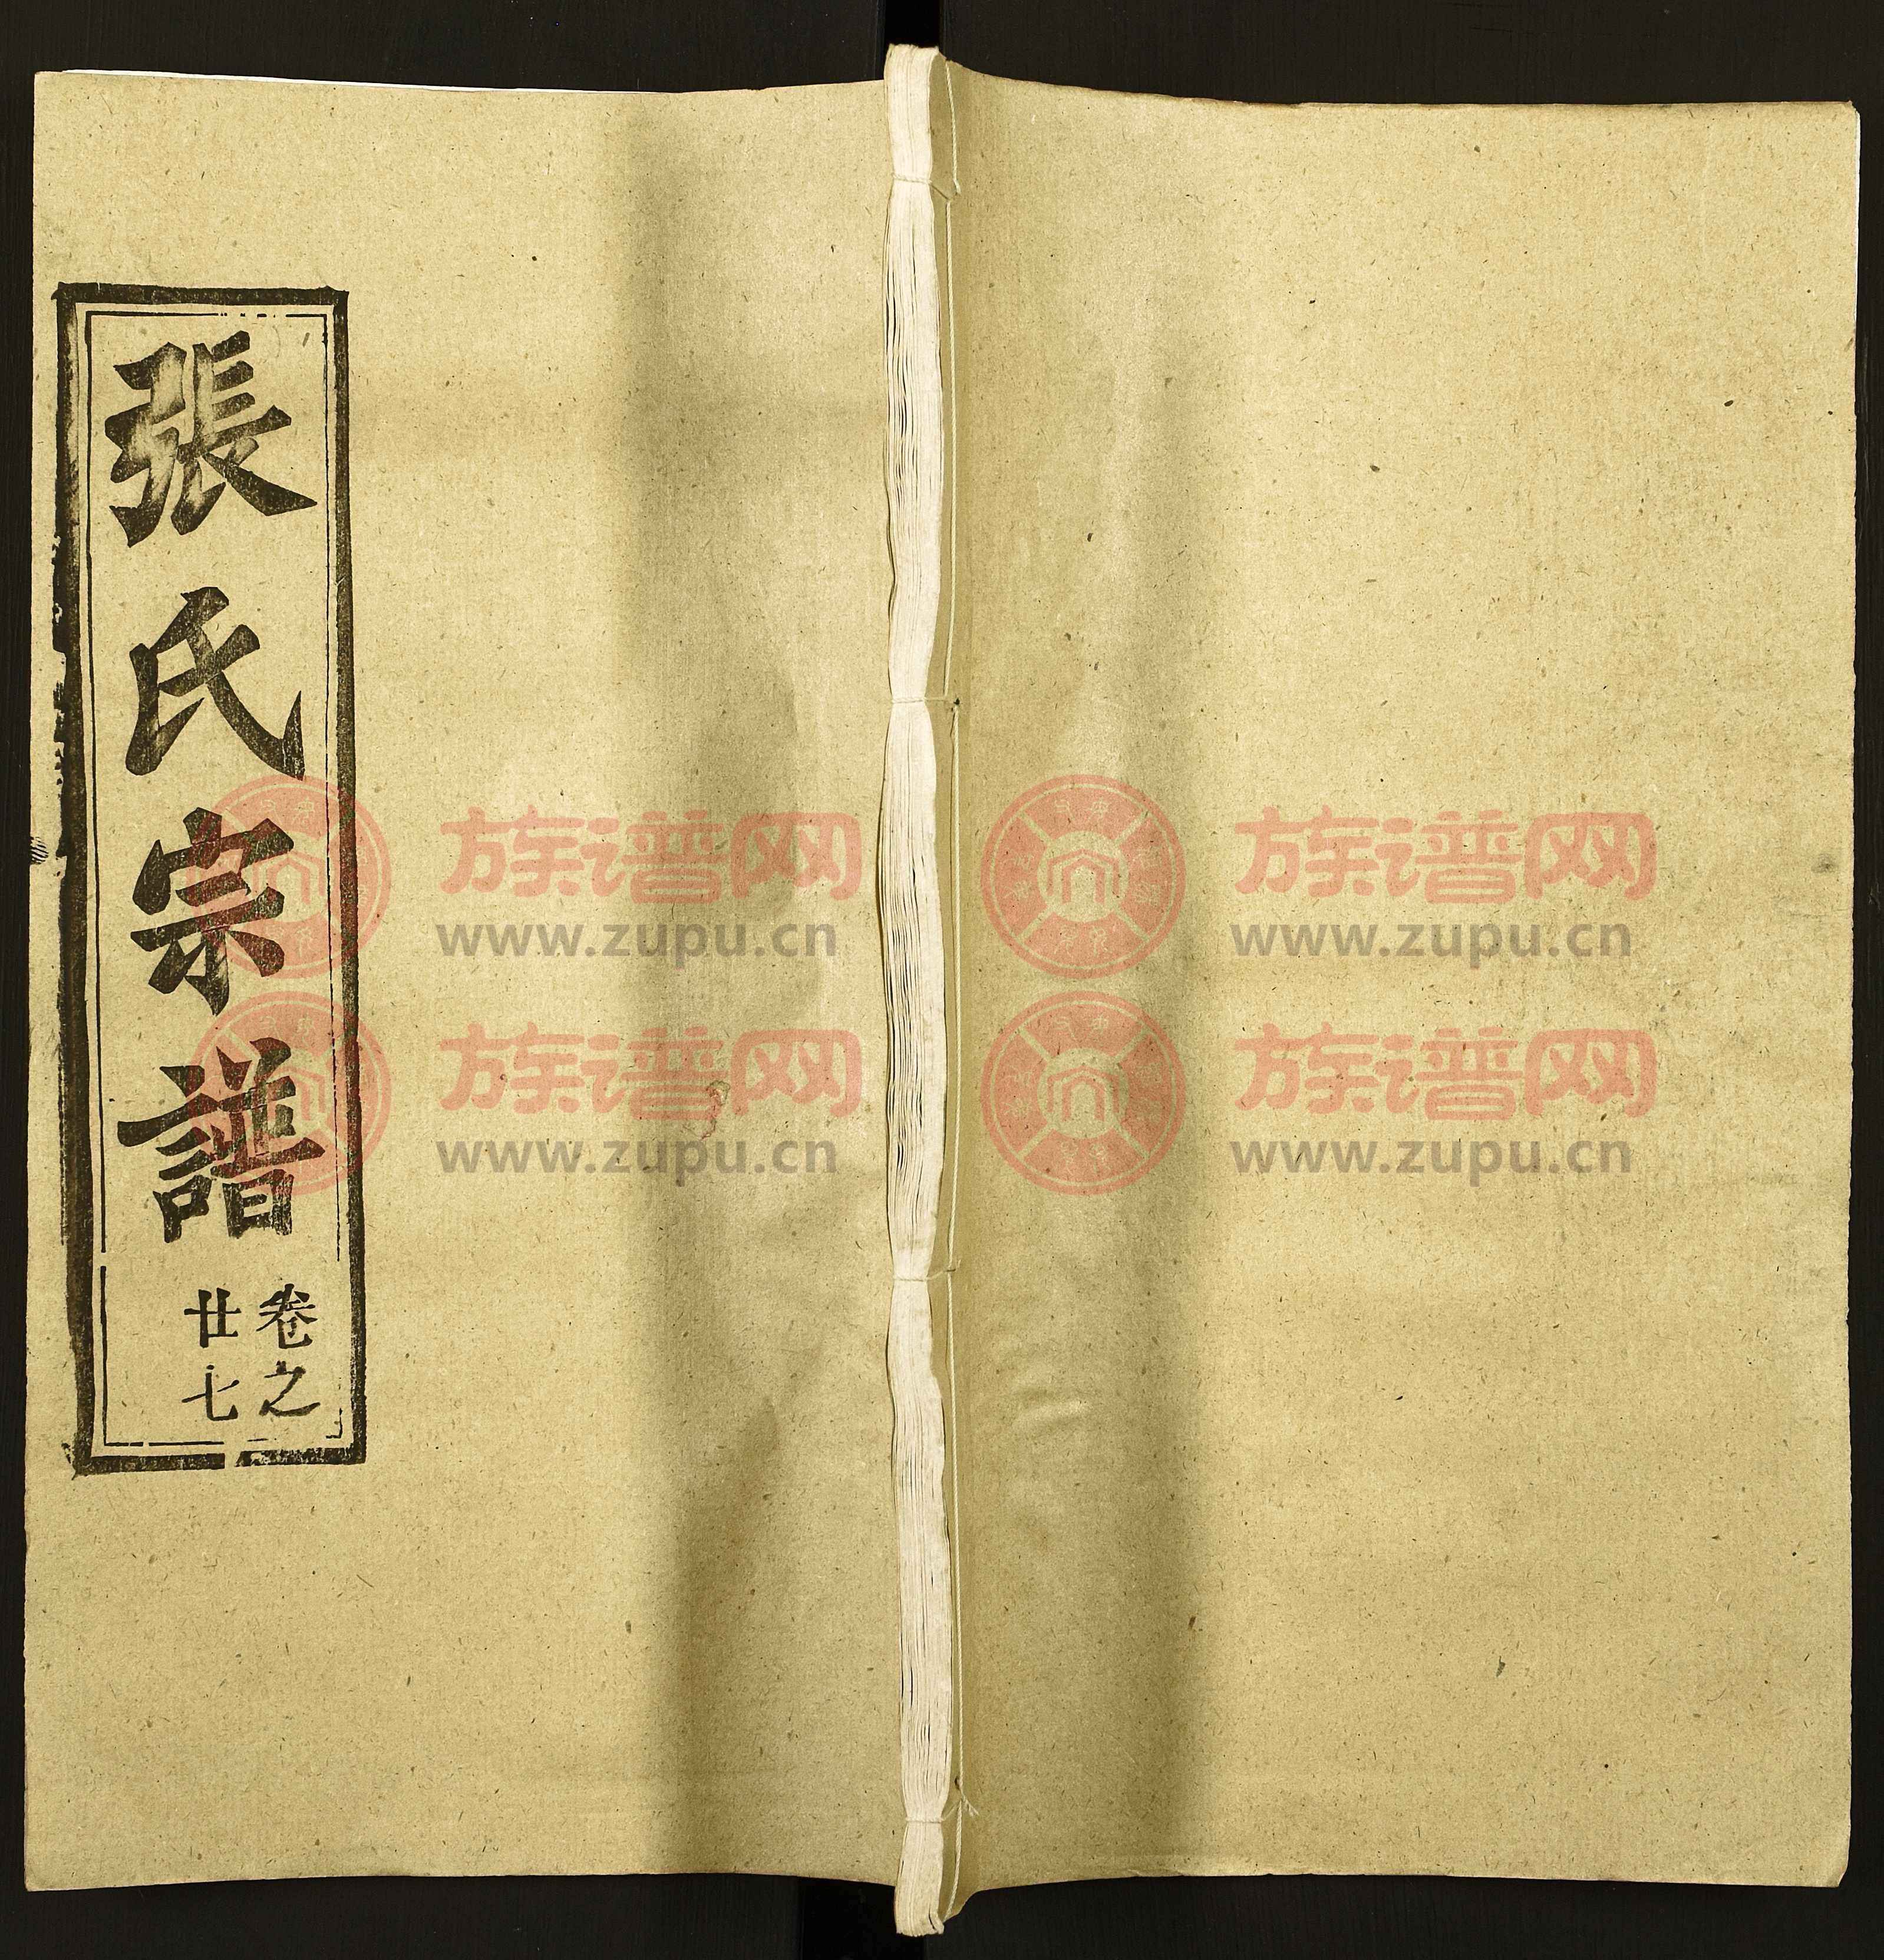 張氏宗譜
卷之
廿七
族谱网
www.zupu.cn
族谱网
www.zupu.cn
族谱网
www.zupu.cn
族谱网
www.zupu.cn